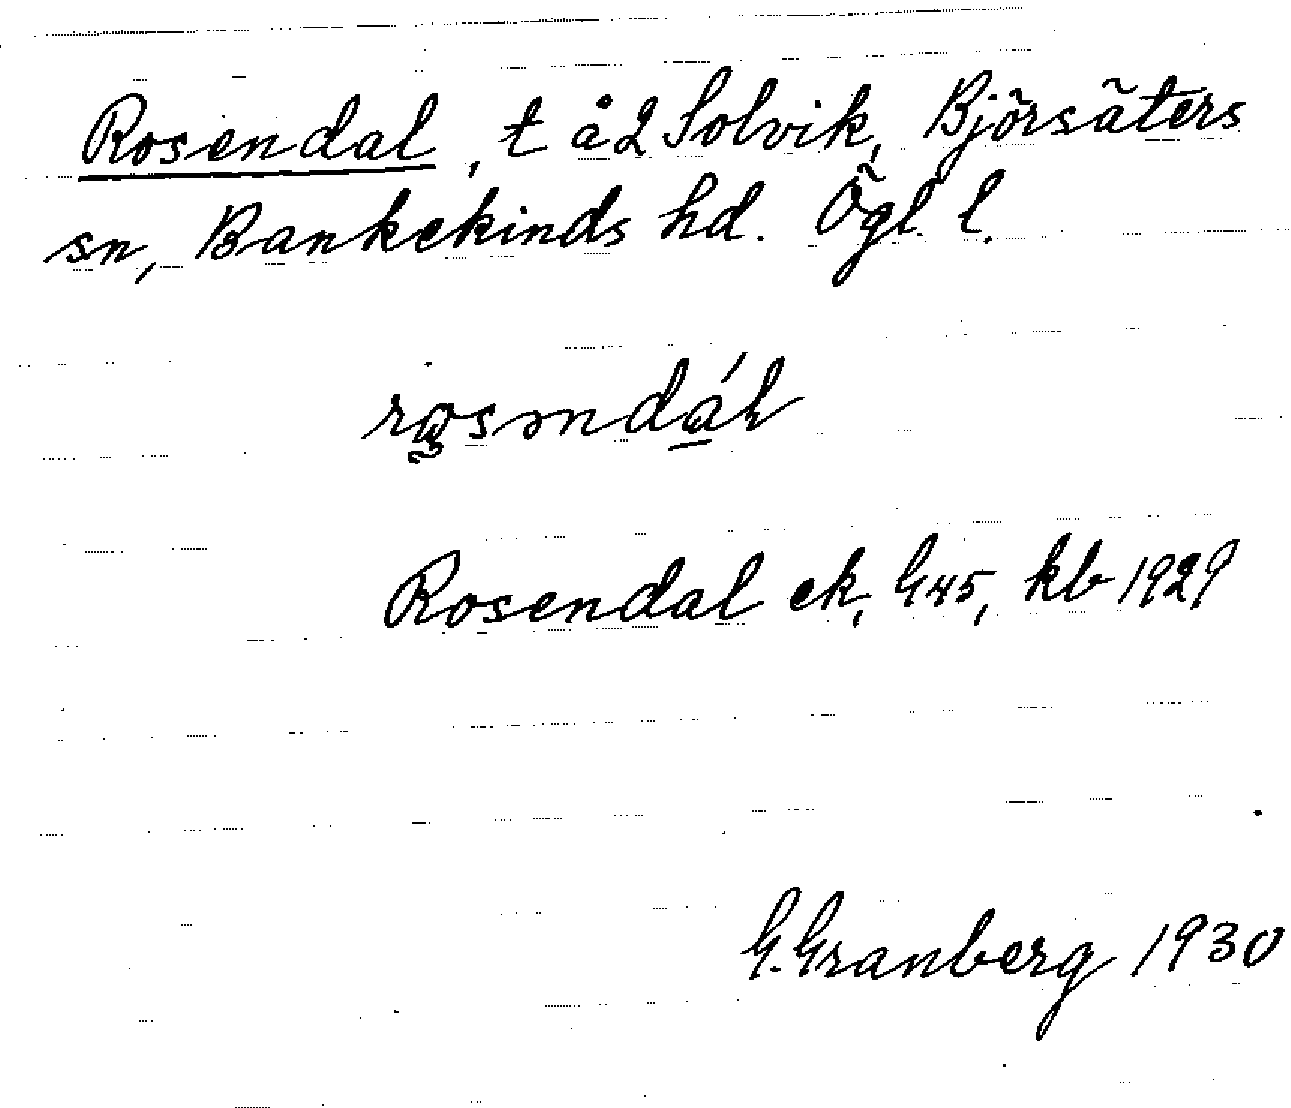 Rosendal, t å 2 Solvik, Björsäters
sn, Bankekinds hd. Ögl. l.
Rosendal ek, G45, kb 1929
G. Granberg 1930